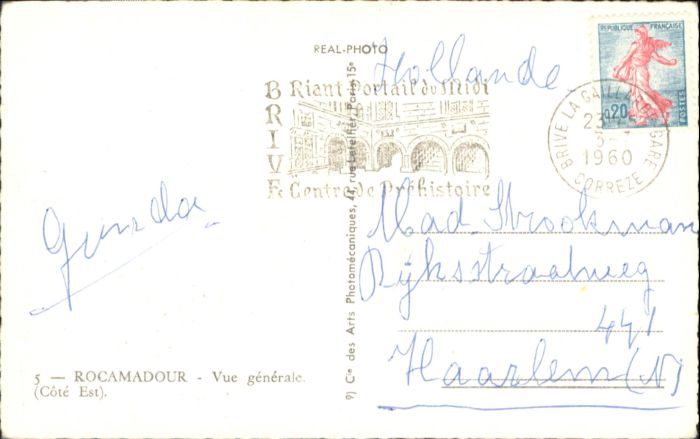 REAL-PHOTO
Hollande
REPUBLIQUE FRANÇAISE
0,20
POSTES
BRIVE LA GAILLARDE GARE
1960
CORREZE
BRIVE
Riant Portail du Midi
Centre de Préhistoire
9) Cie des Arts Photomécaniques, 44, rue Letellier, Paris 15e
Mad. Strookman
Rijksstraatweg
441
Haarlem (N)
5 — ROCAMADOUR - Vue générale.
(Côté Est).